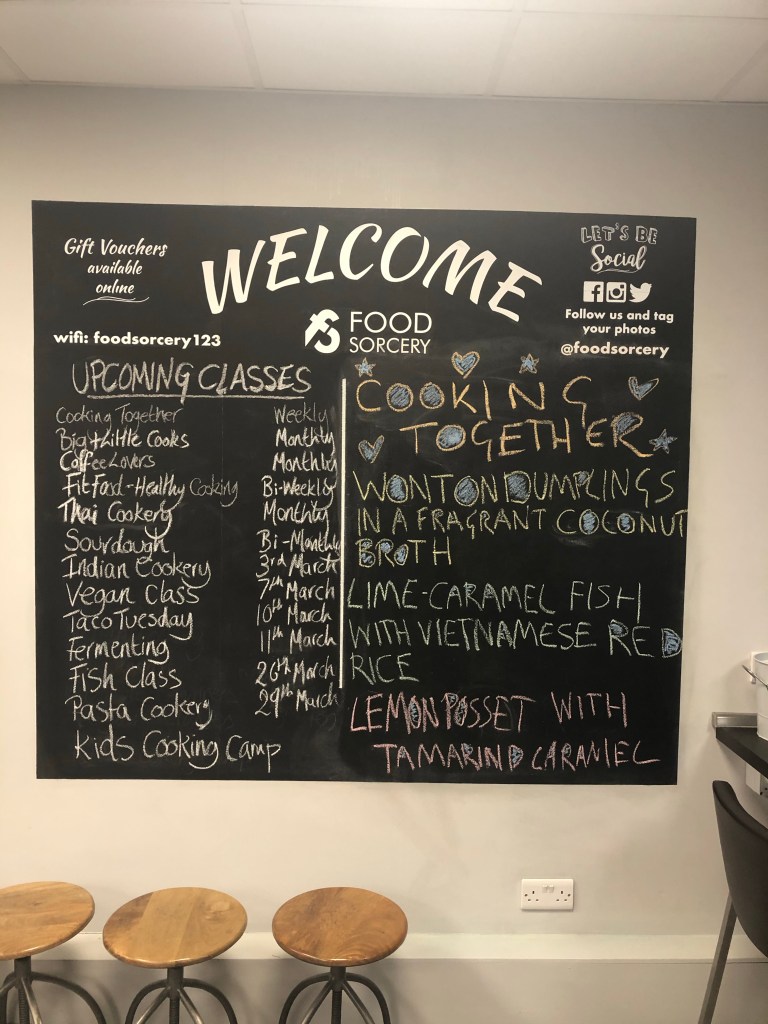 Gift Vouchers
available
online
WELCOME
LET'S BE
Social
Follow us and tag
your photos
@foodsorcery
wifi: foodsorcery123
FOOD
SORCERY
UPCOMING CLASSES
Cooking Together Weekly
Big + Little Cooks Monthly
Coffee Lovers Monthly
Fit Food - Healthy Cooking Bi-Weekly
Thai Cookery Monthly
Sourdough Bi-Monthly
Indian Cookery 3rd March
Vegan Class 7th March
Taco Tuesday 10th March
Fermenting 11th March
Fish Class 26th March
Pasta Cookery 29th March
Kids Cooking Camp
COOKING
TOGETHER
WONTON DUMPLINGS
IN A FRAGRANT COCONUT
BROTH
LIME-CARAMEL FISH
WITH VIETNAMESE RED
RICE
LEMON POSSET WITH
TAMARIND CARAMEL